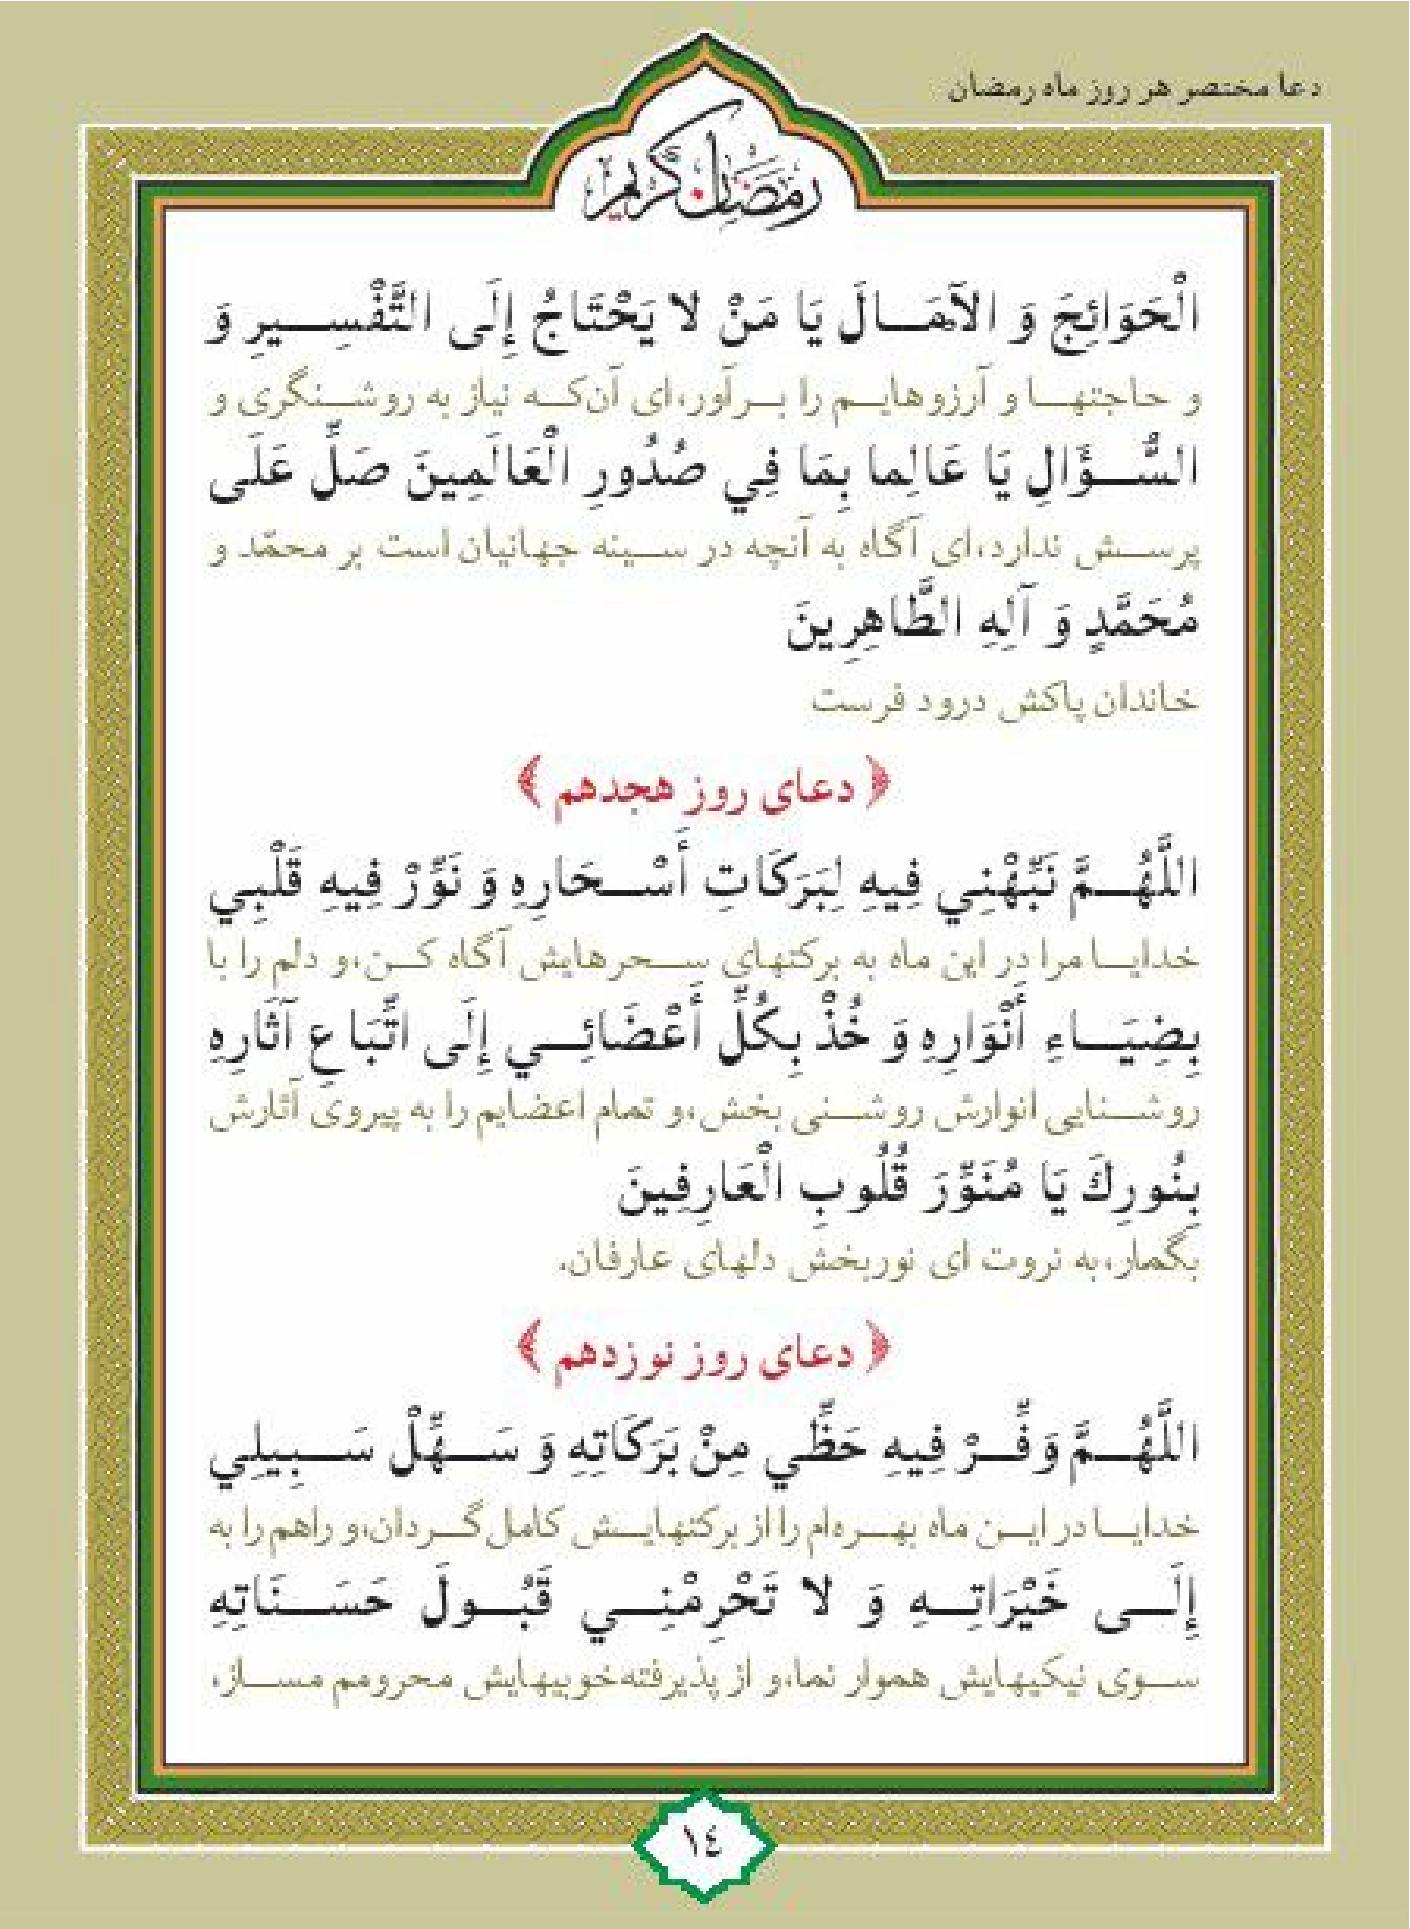 دعا مختصر هر روز ماه رمضان
رمضان كريم
الْحَوَائِجَ وَ الْآمَالَ يَا مَنْ لا يَحْتَاجُ إِلَى التَّفْسِيرِ وَ
و حاجتها و آرزوهایم را برآور،ای آن‌که نیاز به روشنگری و
السُّؤَالِ يَا عَالِما بِمَا فِي صُدُورِ الْعَالَمِينَ صَلِّ عَلَى
پرسش ندارد،ای آگاه به آنچه در سینه جهانیان است بر محمّد و
مُحَمَّدٍ وَ آلِهِ الطَّاهِرِينَ
خاندان پاکش درود فرست
﴿ دعای روز هجدهم ﴾
اللَّهُمَّ نَبِّهْنِي فِيهِ لِبَرَكَاتِ أَسْحَارِهِ وَ نَوِّرْ فِيهِ قَلْبِي
خدایا مرا در این ماه به برکتهای سحرهایش آگاه کن،و دلم را با
بِضِيَاءِ أَنْوَارِهِ وَ خُذْ بِكُلِّ أَعْضَائِي إِلَى اتِّبَاعِ آثَارِهِ
روشنایی انوارش روشنی بخش،و تمام اعضایم را به پیروی آثارش
بِنُورِكَ يَا مُنَوِّرَ قُلُوبِ الْعَارِفِينَ
بگمار،به نروت ای نوربخش دلهای عارفان.
﴿ دعای روز نوزدهم ﴾
اللَّهُمَّ وَفِّرْ فِيهِ حَظِّي مِنْ بَرَكَاتِهِ وَ سَهِّلْ سَبِيلِي
خدایا در این ماه بهره‌ام را از برکتهایش کامل گردان،و راهم را به
إِلَى خَيْرَاتِهِ وَ لا تَحْرِمْنِي قَبُولَ حَسَنَاتِهِ
سوی نیکیهایش هموار نما،و از پذیرفته خوبیهایش محرومم مساز،
١٤